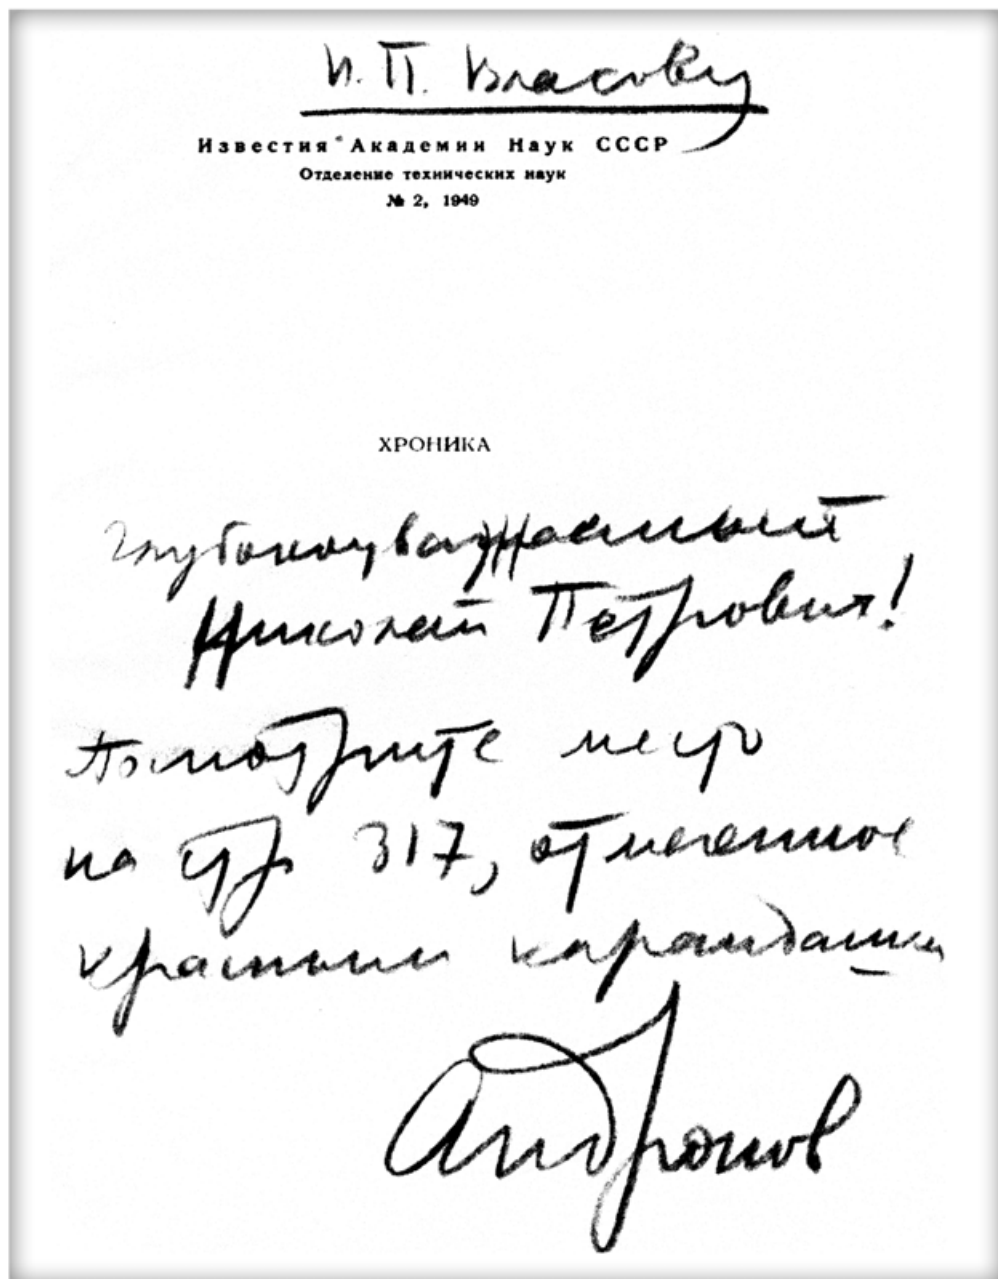 Н. П. Власову
Известия Академии Наук СССР
Отделение технических наук
№ 2, 1949
ХРОНИКА
Глубокоуважаемый
Николай Петрович!
Посмотрите место
на стр 317, отмеченное
красным карандашом
Андронов